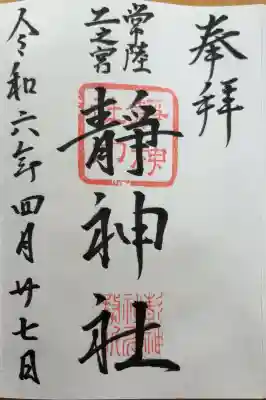 奉拝
常陸
二之宮
靜神社
令和六年四月廿七日